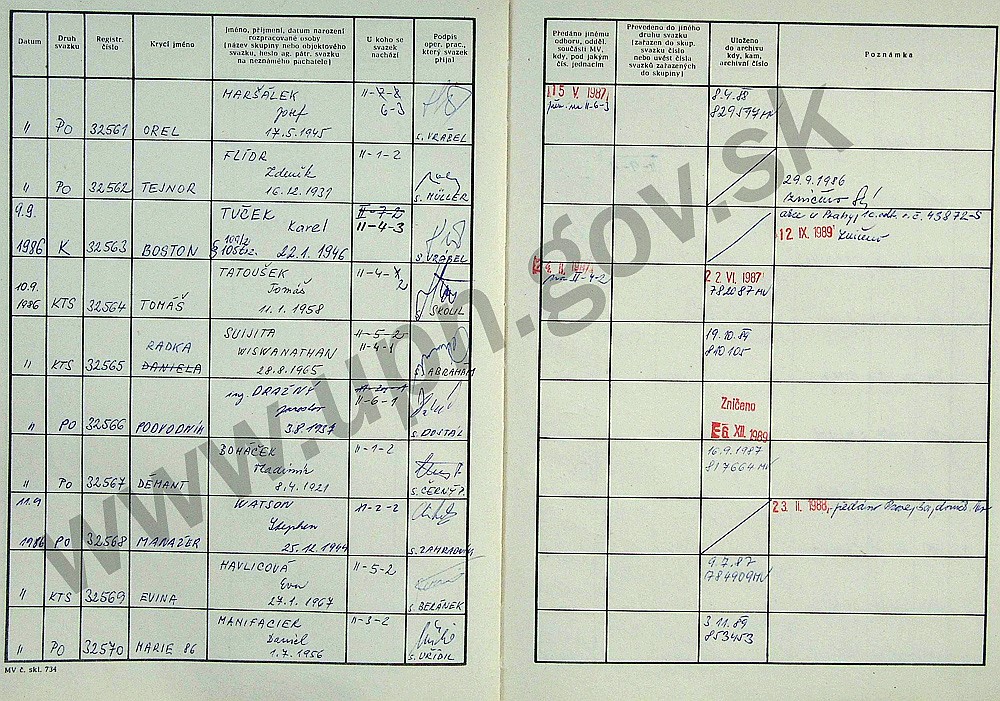 Datum
Druh svazku
Registr. číslo
Krycí jméno
Jméno, příjmení, datum narození
rozpracované osoby
(název skupiny nebo objektového
svazku, heslo ag. pátr. svazku
na neznámého pachatele)
U koho se svazek nachází
Podpis
oper. prac.,
který svazek
přijal
Předáno jinému
odboru, odděl.
součásti MV,
kdy, pod jakým
čís. jednacím
Převedeno do jiného
druhu svazku
(zařazen do skup.
svazku číslo
nebo uvést čísla
svazků zařazených
do skupiny)
Uloženo
do archivu
kdy, kam,
archivní číslo
Poznámka
MARŠÁLEK II-7-8 15 V. 1987 8.4.88
Josef 6-3 na II-6-3 829574 MV
" PO 32561 OREL 17.5.1945 s. VRÁBEL
FLÍDR II-1-2
Zdeněk 29.9.1986
" PO 32562 TEJNOR 16.12.1937 s. MÜLLER Zničeno
9.9. TUČEK II-7-2
Karel II-4-3 12 IX. 1989 Zničeno
1986 K 32563 BOSTON 22.1.1946 s. VRÁBEL
TATOUŠEK II-4- 2 2 2. VI. 1987
10.9. Tomáš na II-4-2 782087 MV
1986 KTS 32564 TOMÁŠ 11.1.1958 ŠKOLIL
SUIJITA II-5-2 19.10.89
RADKA WISWANATHAN II-4-1 810105
" KTS 32565 DANIELA 28.8.1965 s. ABRAHÁM
ing. DRAŽNÝ Zničeno
Jaroslav II-6-1
" PO 32566 PODVODNÍK 3.8.1937 s. DOSTÁL 6. XII. 1989
BOHÁČEK II-1-2 16.9.1987
Vladimír 817664 MV
" PO 32567 DĚMANT 8.4.1921 s. ČERNÝ P.
11.9 WATSON II-2-2 23. II. 1988 - předáno
Stephen
1986 PO 32568 MANAŽER 25.12.1944 s. ZAHRADNÍK
HAVLICOVÁ II-5-2 9.7.87
Eva 784909 MV
" KTS 32569 EVINA 27.1.1967 s. BERÁNEK
MANIFACIER II-3-2 3.11.89
Daniel 853453
" PO 32570 MARIE 86 1.7.1956 s. UŘIDIL
MV č. skl. 734
www.upn.gov.sk